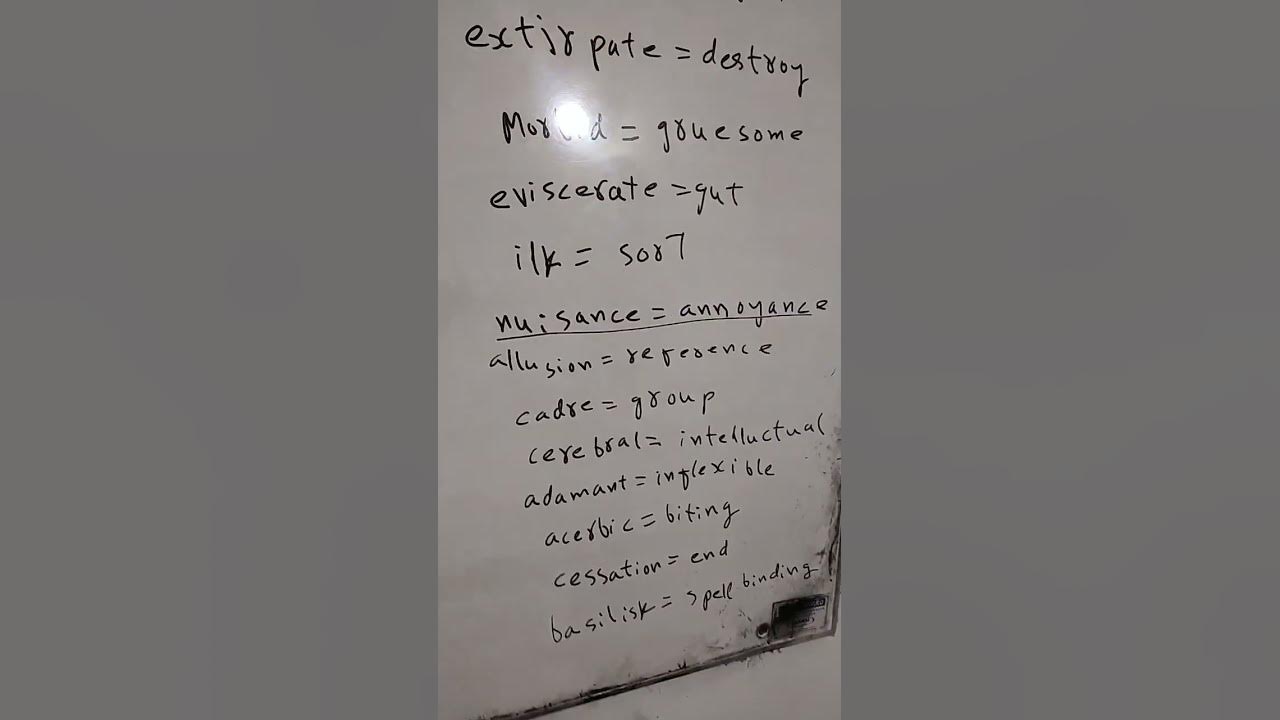 extirpate = destroy
Morbid = gruesome
eviscerate = gut
ilk = sort
nuisance = annoyance
allusion = reference
cadre = group
cerebral = intelluctual
adamant = inflexible
acerbic = biting
cessation = end
basilisk = spell binding